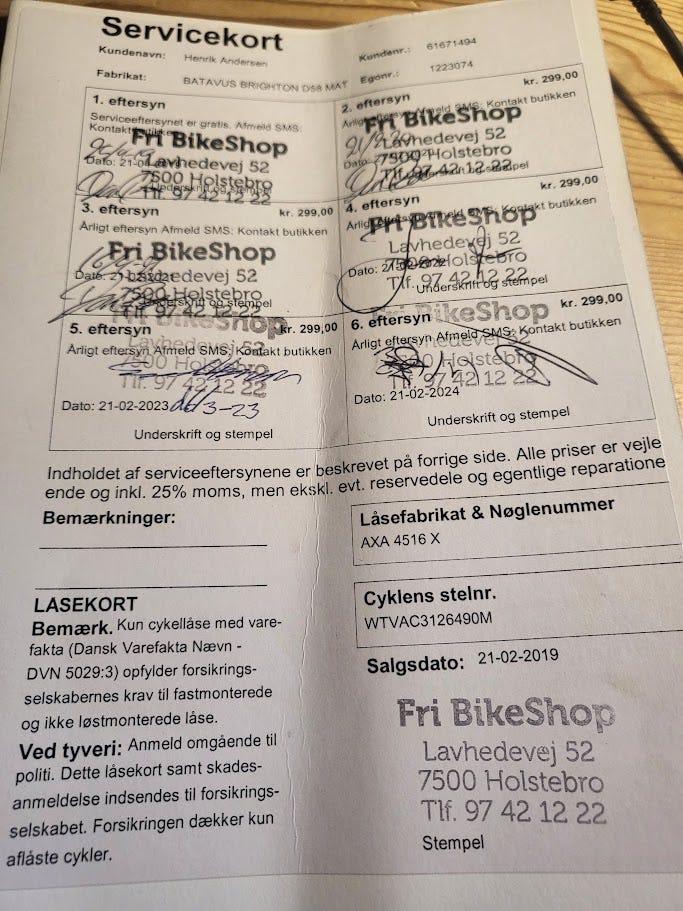 Servicekort
Kundenavn: Henrik Andersen
Kundenr.: 61671494
Fabrikat: BATAVUS BRIGHTON D58 MAT
Egonr.: 1223074
1. eftersyn
Serviceeftersynet er gratis. Afmeld SMS:
Kontakt butikken
Fri BikeShop
Lavhedevej 52
7500 Holstebro
Tlf. 97 42 12 22
Dato:
Underskrift og stempel
2. eftersyn kr. 299,00
Årligt eftersyn Afmeld SMS: Kontakt butikken
Fri BikeShop
Lavhedevej 52
7500 Holstebro
Tlf. 97 42 12 22
Dato:
Underskrift og stempel
3. eftersyn kr. 299,00
Årligt eftersyn Afmeld SMS: Kontakt butikken
Fri BikeShop
Lavhedevej 52
7500 Holstebro
Tlf. 97 42 12 22
Dato: 21-02-2021
Underskrift og stempel
4. eftersyn kr. 299,00
Årligt eftersyn Afmeld SMS: Kontakt butikken
Fri BikeShop
Lavhedevej 52
7500 Holstebro
Tlf. 97 42 12 22
Dato: 21-02-2022
Underskrift og stempel
5. eftersyn kr. 299,00
Årligt eftersyn Afmeld SMS: Kontakt butikken
Fri BikeShop
Lavhedevej 52
7500 Holstebro
Tlf. 97 42 12 22
Dato: 21-02-2023
Underskrift og stempel
6. eftersyn kr. 299,00
Årligt eftersyn Afmeld SMS: Kontakt butikken
Fri BikeShop
Lavhedevej 52
7500 Holstebro
Tlf. 97 42 12 22
Dato: 21-02-2024
Underskrift og stempel
Indholdet af serviceeftersynene er beskrevet på forrige side. Alle priser er vejle
ende og inkl. 25% moms, men ekskl. evt. reservedele og egentlige reparatione
Bemærkninger:
Låsefabrikat & Nøglenummer
AXA 4516 X
Cyklens stelnr.
WTVAC3126490M
Salgsdato: 21-02-2019
LÅSEKORT
Bemærk. Kun cykellåse med vare-
fakta (Dansk Varefakta Nævn -
DVN 5029:3) opfylder forsikrings-
selskabernes krav til fastmonterede
og ikke løstmonterede låse.
Ved tyveri: Anmeld omgående til
politi. Dette låsekort samt skades-
anmeldelse indsendes til forsikrings-
selskabet. Forsikringen dækker kun
aflåste cykler.
Fri BikeShop
Lavhedevej 52
7500 Holstebro
Tlf. 97 42 12 22
Stempel